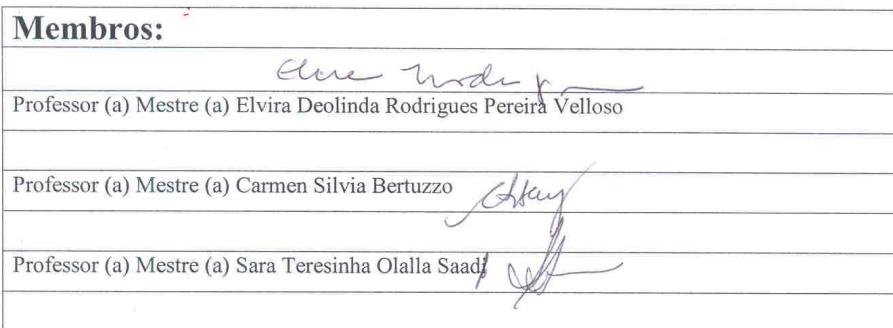 Membros:
Professor (a) Mestre (a) Elvira Deolinda Rodrigues Pereira Velloso
Professor (a) Mestre (a) Carmen Silvia Bertuzzo
Professor (a) Mestre (a) Sara Teresinha Olalla Saad